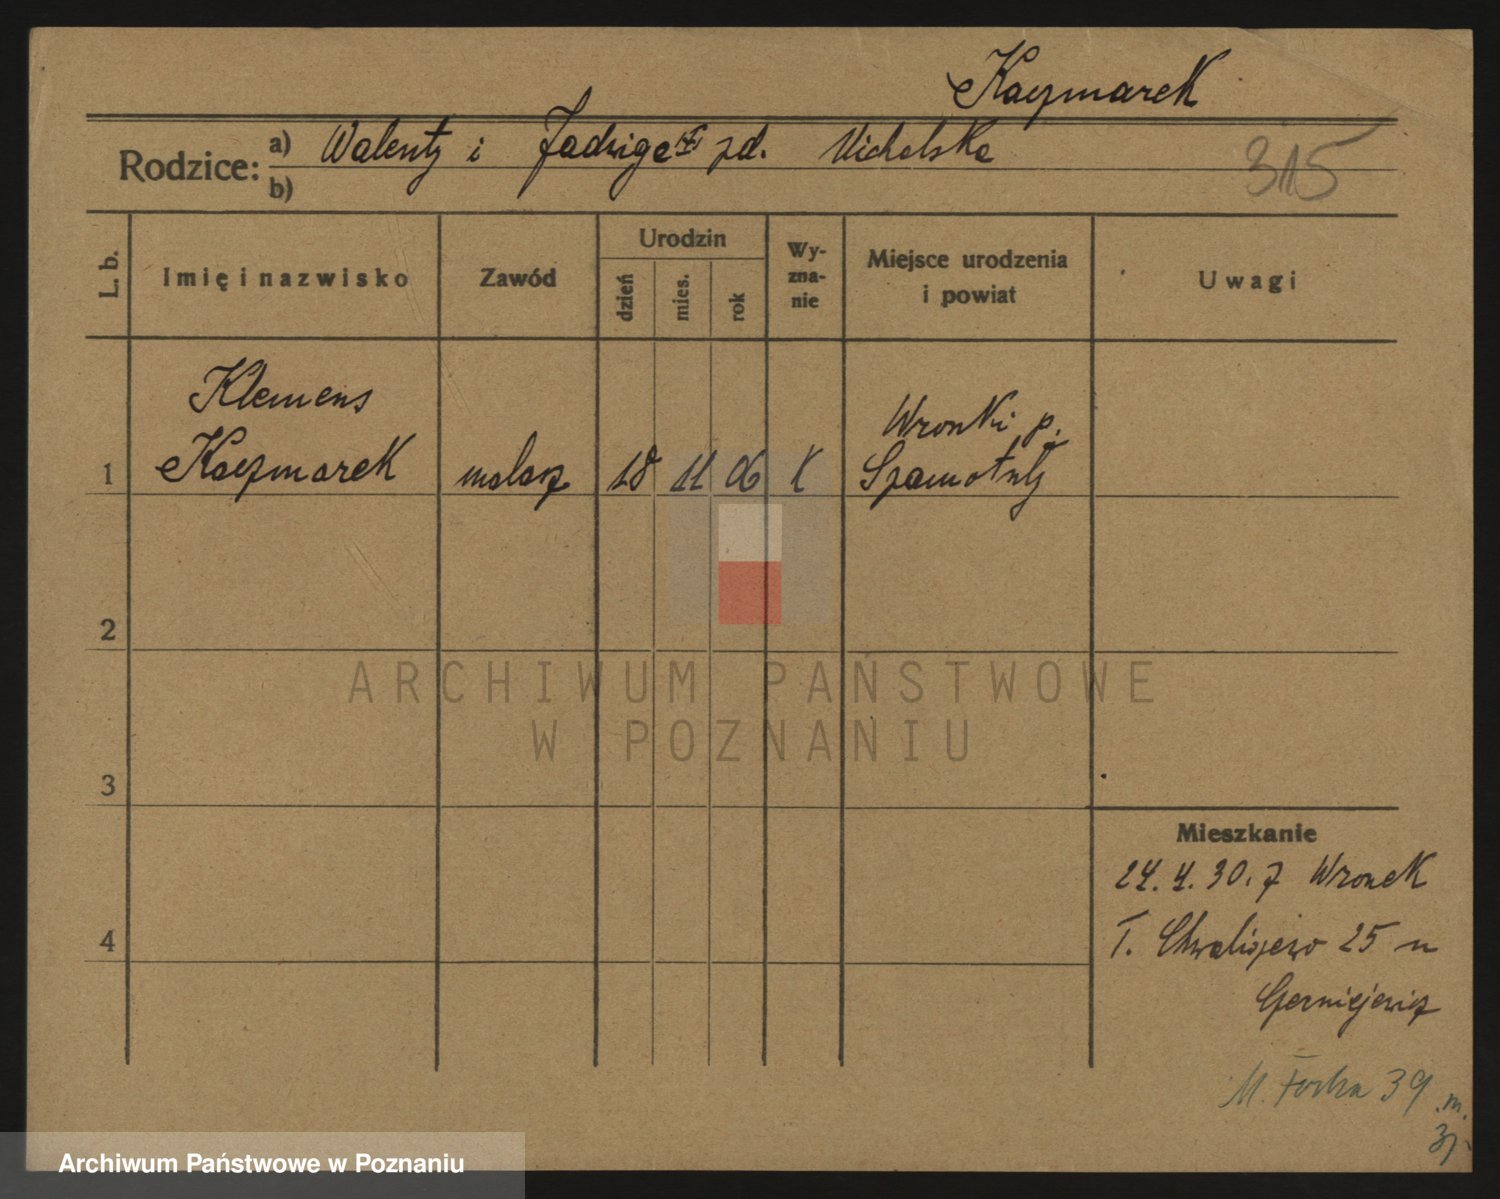 Kaczmarek
315
Rodzice: a) Walenty i Jadwiga zd. Michalska
b)
L. b.
Imię i nazwisko
Zawód
Urodzin
dzień
mies.
rok
Wy-
zna-
nie
Miejsce urodzenia
i powiat
Uwagi
Klemens
1 Kaczmarek malarz 18 11 06 k Wronki p.
Szamotuły
2
3
4
ARCHIWUM PAŃSTWOWE
W POZNANIU
Mieszkanie
24. 4. 30. z Wronek
T. Chwaliszewo 25 u
M. Focha 39 m.
Archiwum Państwowe w Poznaniu